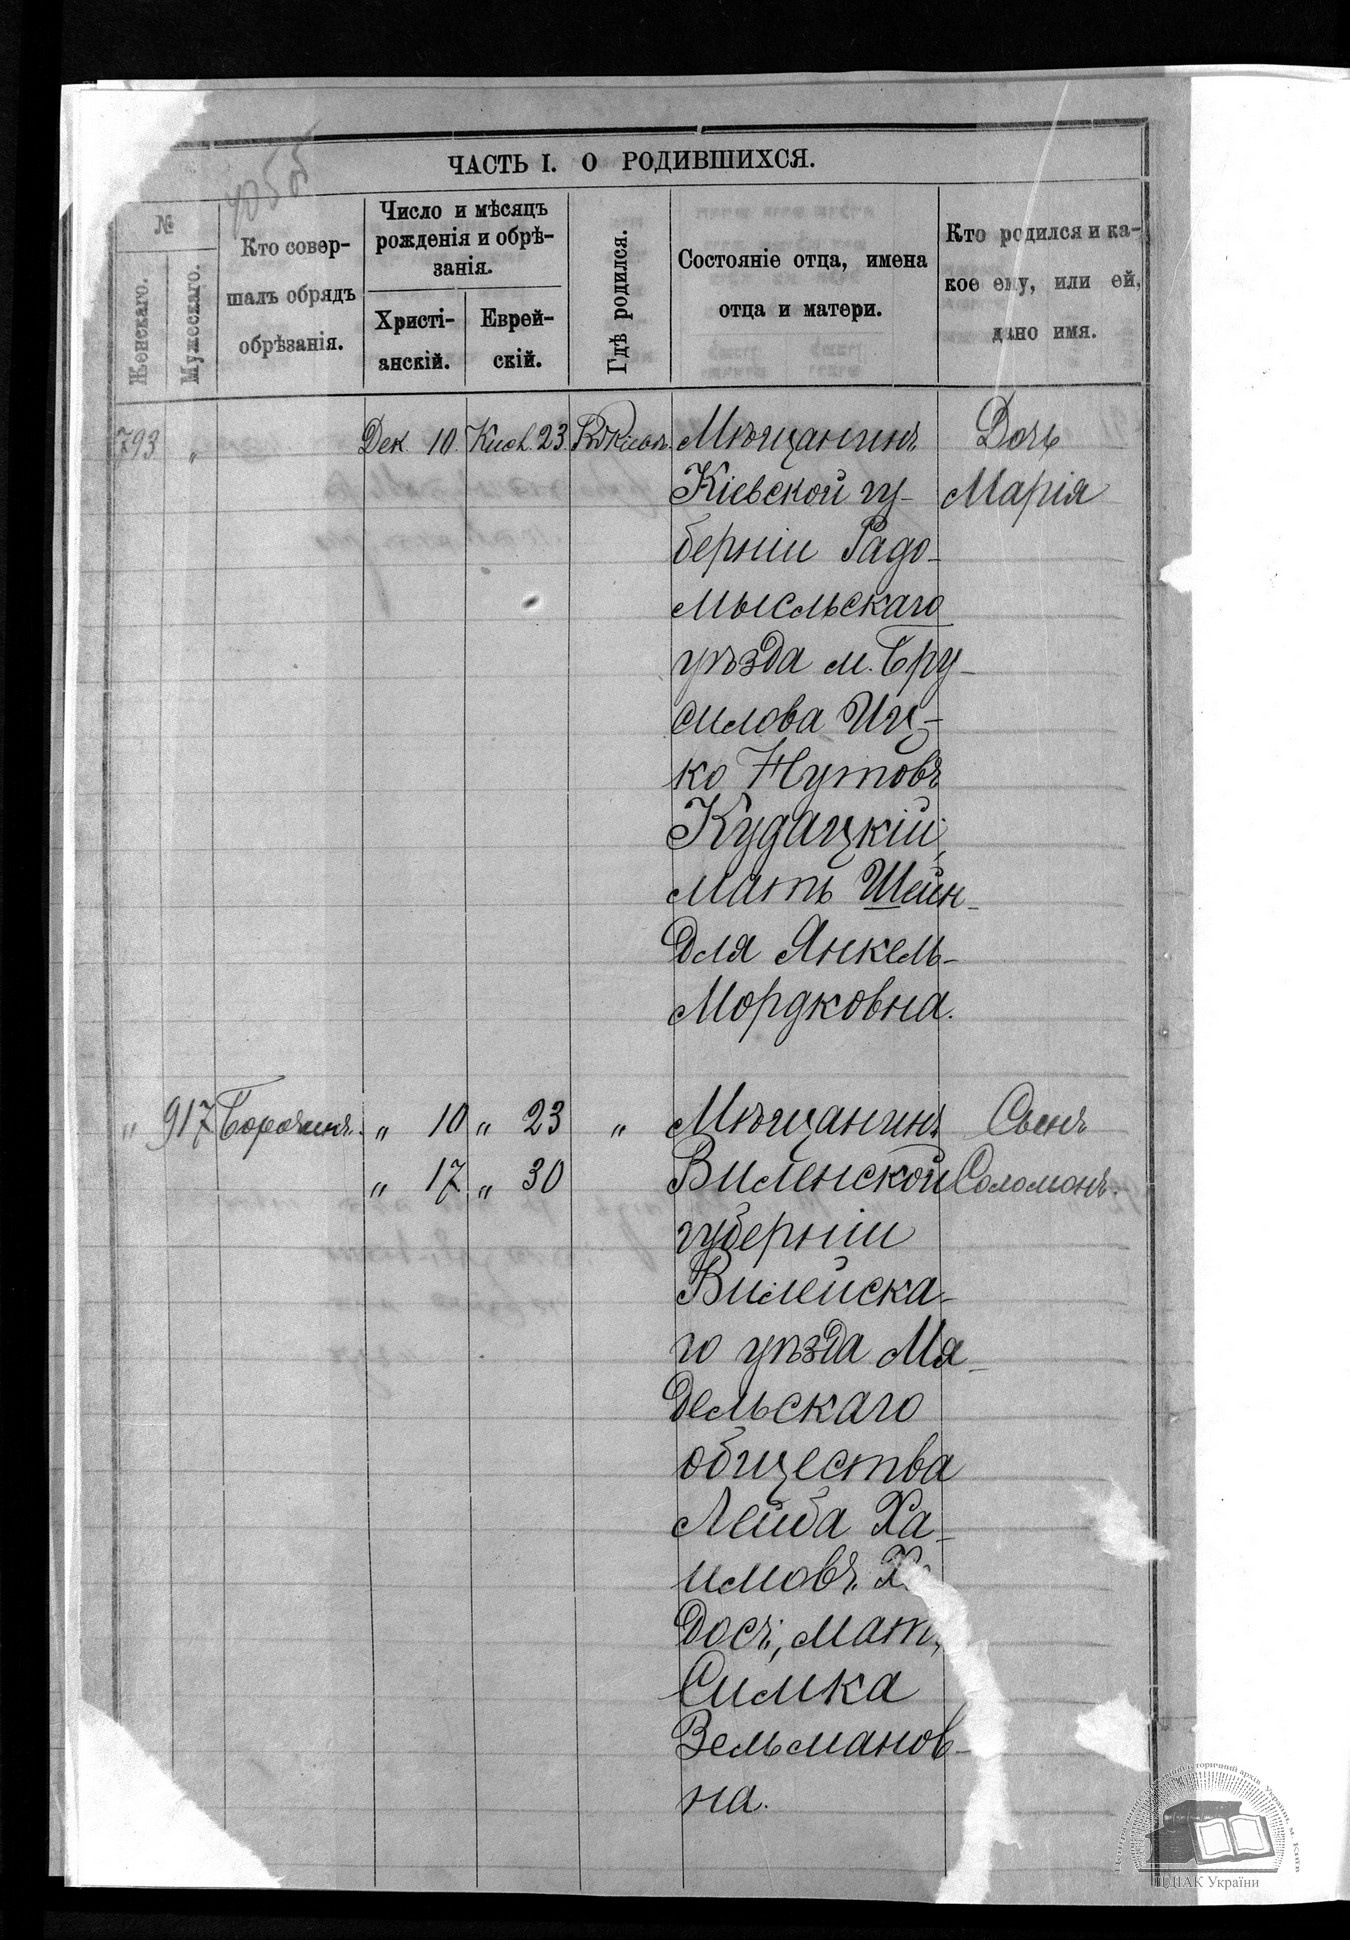 ЧАСТЬ I. О РОДИВШИХСЯ.
№
Женскаго.
Мужескаго.
Кто совер-
шалъ обрядъ
обрѣзанія.
Число и мѣсяцъ
рожденія и обрѣ-
занія.
Христі-
анскій.
Еврей-
скій.
Гдѣ родился.
Состояніе отца, имена
отца и матери.
Кто родился и ка-
кое ему, или ей,
дано имя.
793 " Дек. 10. Кисл. 23. Въ Кіевѣ. Мѣщанинъ Дочь
Кіевской гу- Марія
берніи Радо-
мысльскаго
уѣзда м. Бру-
силова Иц-
ко Нутовъ
Кудацкій,
мать Шейн-
для Янкель-
Мордковна.
" 917 " 10 " 23 " Мѣщанинъ Сынъ
" 17 " 30 Виленской Соломонъ.
губерніи
Вилейска-
го уѣзда Мя-
дельскаго
общества
Лейба Ха-
имовъ
досъ, мать
Симка
Зельманов-
на.
ЦДІАК України